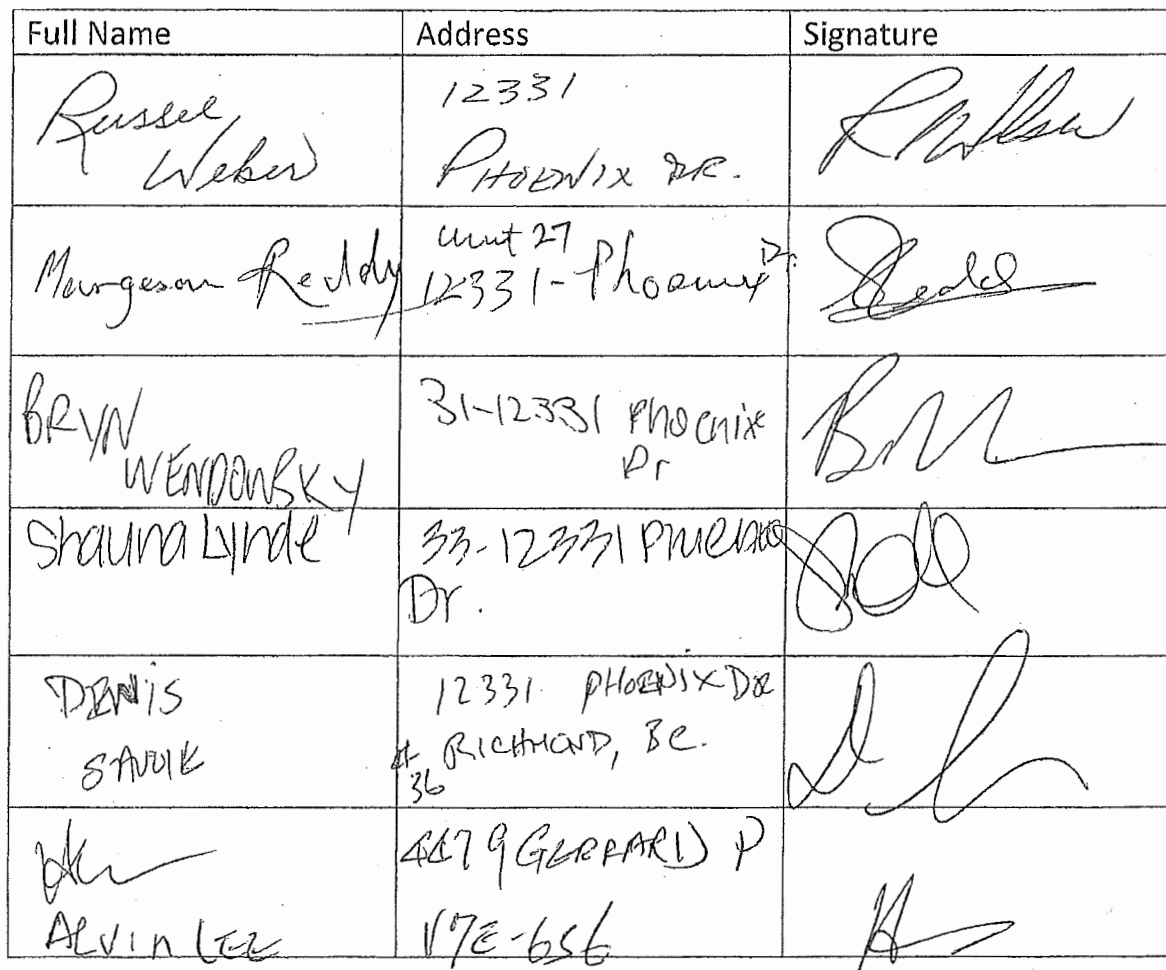 Full Name Address Signature
Russel
Weber
12331
PHOENIX DR.
Reddy
unit 27
12331-Phoenix Dr.
BRYN
WENDOWSKY
31-12331 Phoenix
Dr
Shauna Lynde
33-12331 Phoenix
Dr.
DENIS
SAVOIE
12331 PHOENIX DR
# 36 RICHMOND, BC.
ALVIN LEE
4479 GERRARD P
V7E-6S6